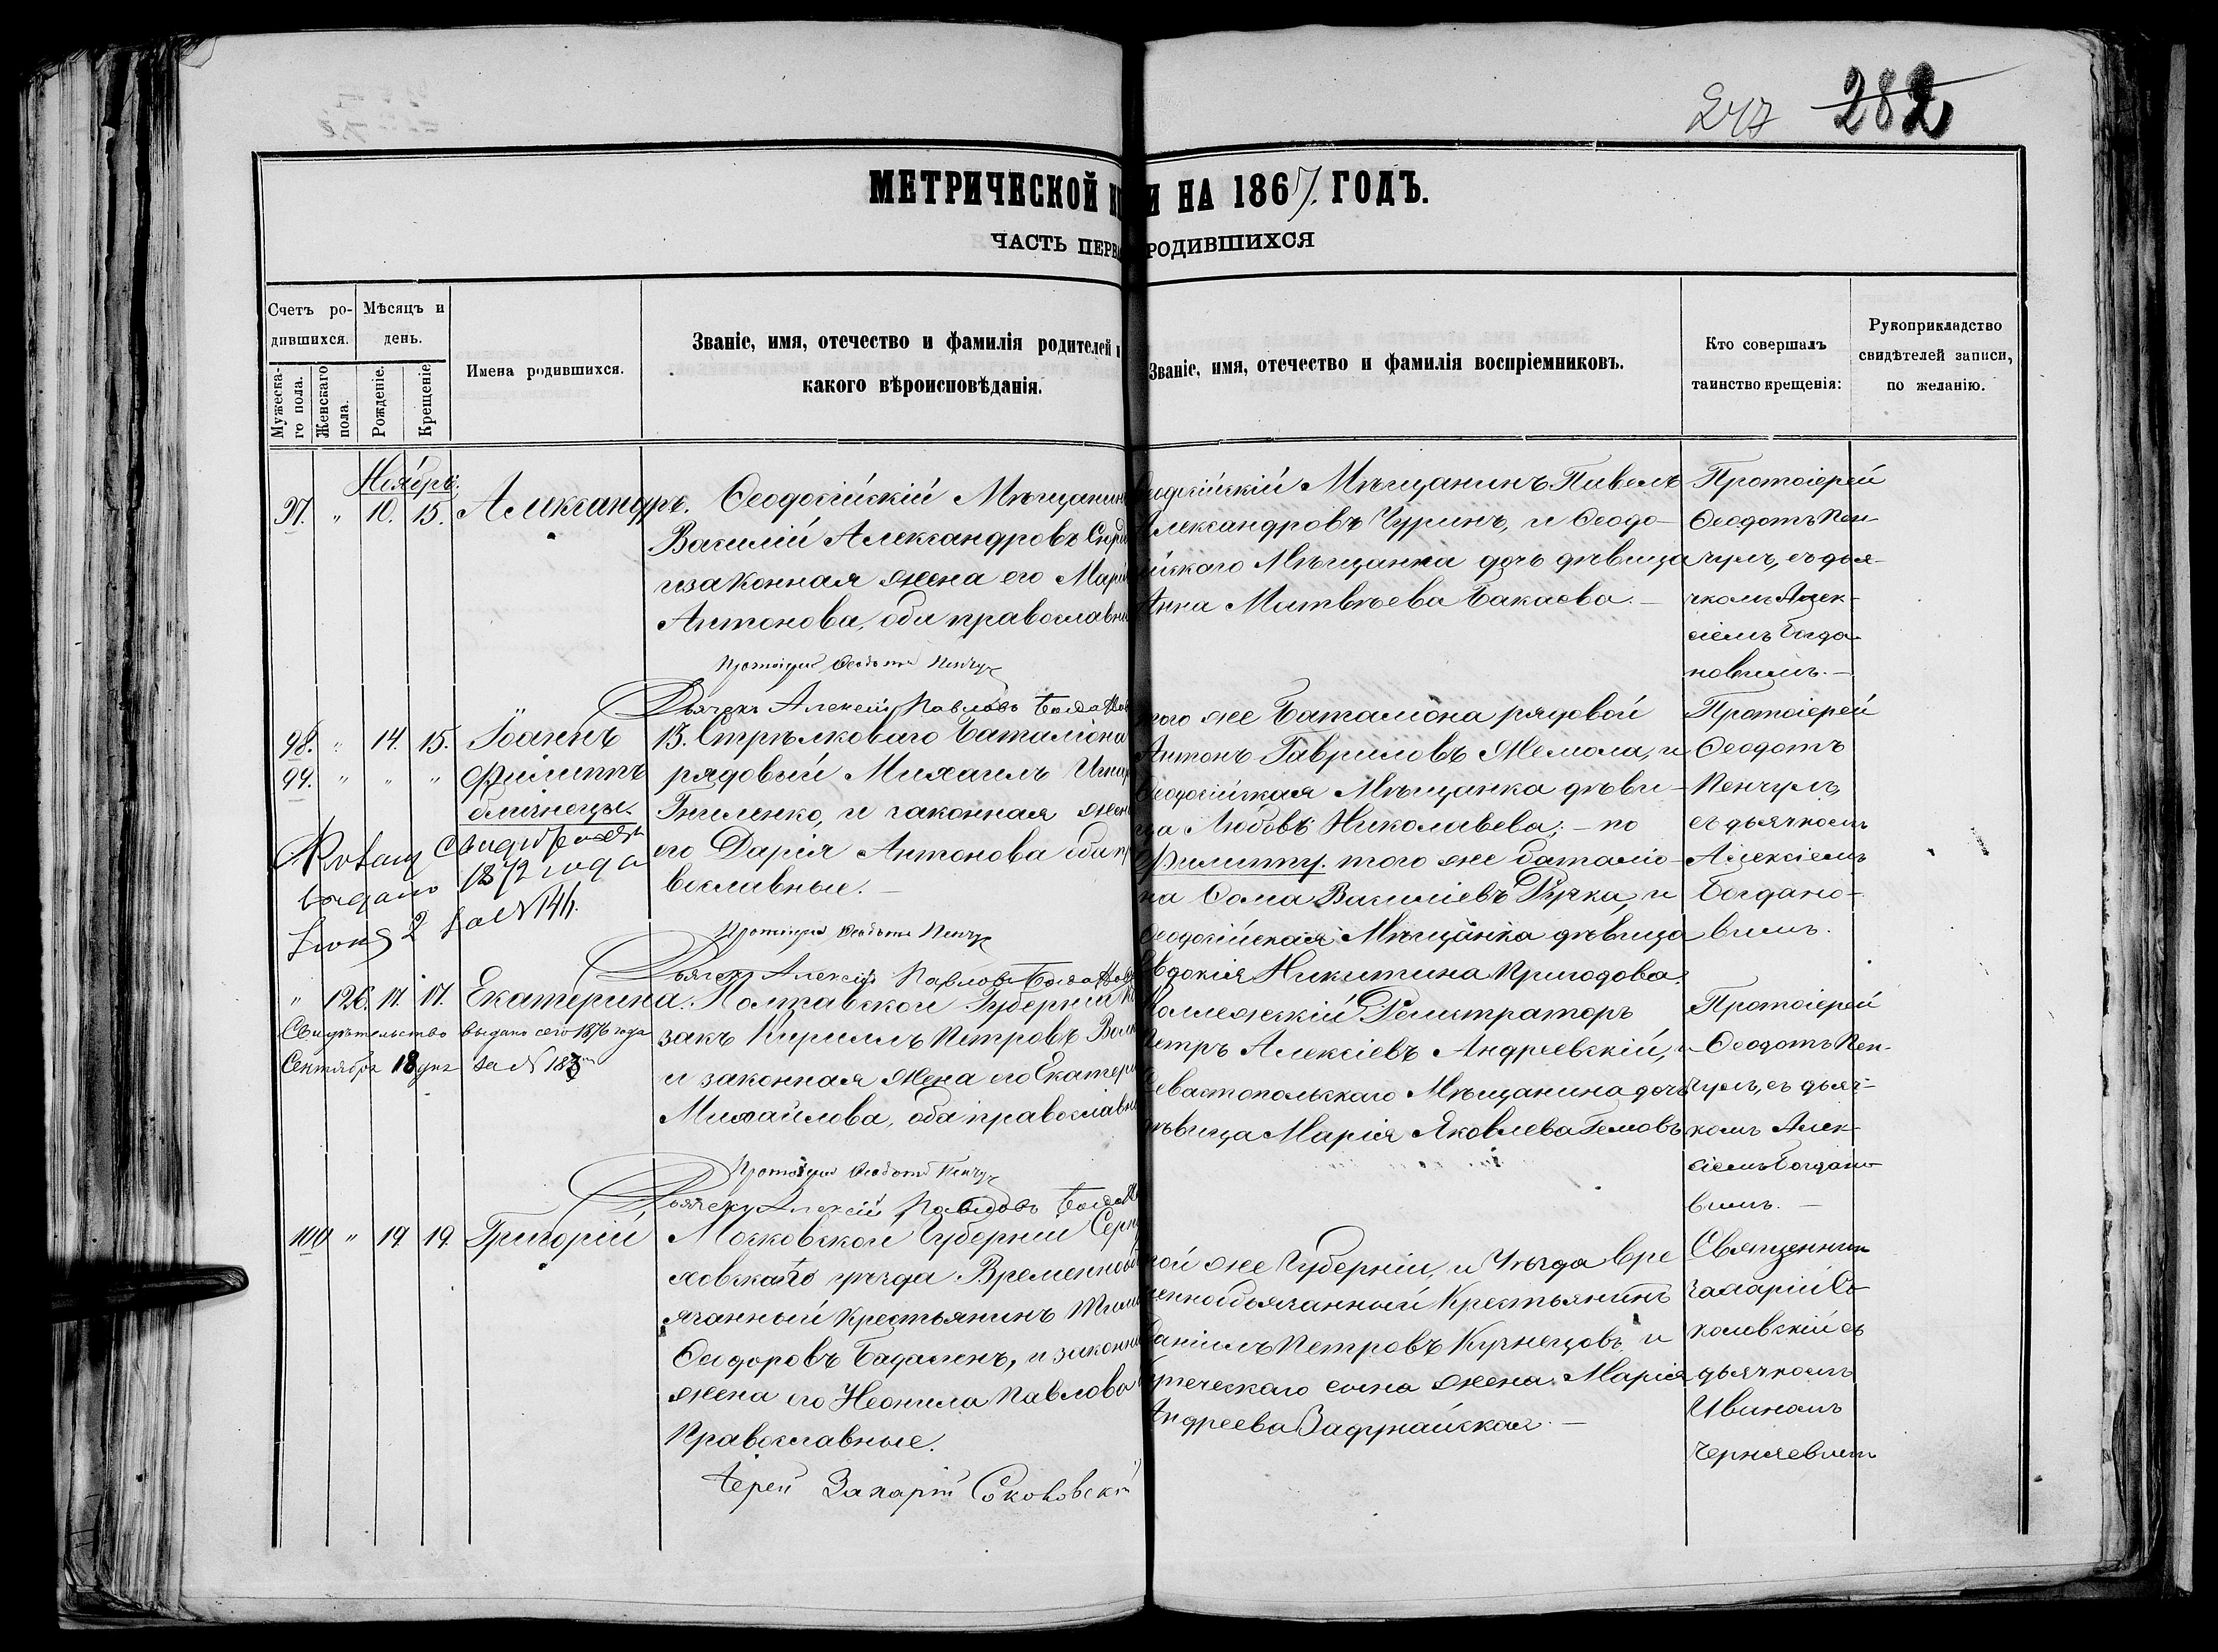 247 282
МЕТРИЧЕСКОЙ К И НА 1867. ГОДЪ.
ЧАСТЬ ПЕРВ РОДИВШИХСЯ
Счетъ ро-
дившихся.
Мужеска-
го пола.
Женскаго
пола.
Мѣсяцъ и
день.
Рожденіе.
Крещеніе
Имена родившихся.
Званіе, имя, отечество и фамилія родителей и
какого вѣроисповѣданія.
Званіе, имя, отечество и фамилія воспріемниковъ.
Кто совершалъ
таинство крещенія:
Рукоприкладство
свидѣтелей записи,
по желанію.
Ноябрь.
97. " 10. 15. Александръ.
Ѳеодосійскій Мѣщанин
Василій Александровъ
и законная жена его Марі
Антонова, оба православн
Протоіерей Ѳеодотъ Пенчул
Дьячекъ Алексѣй Павловъ Богданов
еодосійскій Мѣщанинъ Павелъ
Александровъ Чуринъ, и Ѳеодо-
ійскаго Мѣщанина дочь дѣвица
Анна Матвѣева Бакаева. —
Протоіерей
Ѳеодотъ Пен-
чулъ, съ дья-
чкомъ Алек-
сіемъ Богда-
новымъ. —
98. " 14. 15. Іоаннъ
99. " " " Филиппъ
близнецы.
выдано 1872 года
Іюня 2 за №144.
13. Стрѣлковаго Баталіона
рядовый Михаилъ Игна
Гниленко, и законная жен
его Дарія Антонова оба пр
вославные. —
Протоіерей Ѳеодотъ Пенчул
Дьячекъ Алексѣй Павловъ Богданов
того же Баталіона рядовой
Антонъ Гавриловъ Мемола, и
Ѳеодосійская Мѣщанка дѣви-
ца Любовь Николаева; — по
Филиппу. того же баталіо-
на Ѳома Васильевъ Ручка, и
Ѳеодосійская Мѣщанка дѣвица
Евдокія Никитина Пригодова.
Протоіерей
Ѳеодотъ
Пенчулъ,
съ дьячкомъ
Алексіемъ
Богдано-
вымъ.
" 126. 17. 17. Екатерина.
Свидѣтельство выдано сего 1876 года
Сентября 18 дня за № 183
Полтавской Губерніи Ко
закъ Кириллъ Петровъ
и законная жена его Екатери
Михайлова, оба православн
Протоіерей Ѳеодотъ Пенчул
Дьячекъ Алексѣй Павловъ Богдан
Коллежскій Регистраторъ
Петръ Алексіевъ Андреевскій, и
Севастопольскаго Мѣщанина дочь
дѣвица Марія Яковлева Гемовъ
Протоіерей
Ѳеодотъ Пен-
чулъ, съ дьяч-
комъ Алек-
сіемъ Богдано-
вымъ. —
100 " 19 19. Григорій,
Московской Губерніи Серпу
ховскаго уѣзда Временнооб
язанный Крестьянинъ
Ѳеодоровъ Бадагинъ, и законна
жена его Неонила Павлова
Православные.
Іерей Захарій Соколовскій
той же Губерніи, и Уѣзда вре
менно обязанный Крестьянинъ
Даніилъ Петровъ Кузнецовъ, и
Купеческаго сына жена Марія
Андреева Задунайская. —
Священник
Захарій Со
коловскій съ
дьячкомъ
Иваномъ
Черняевым